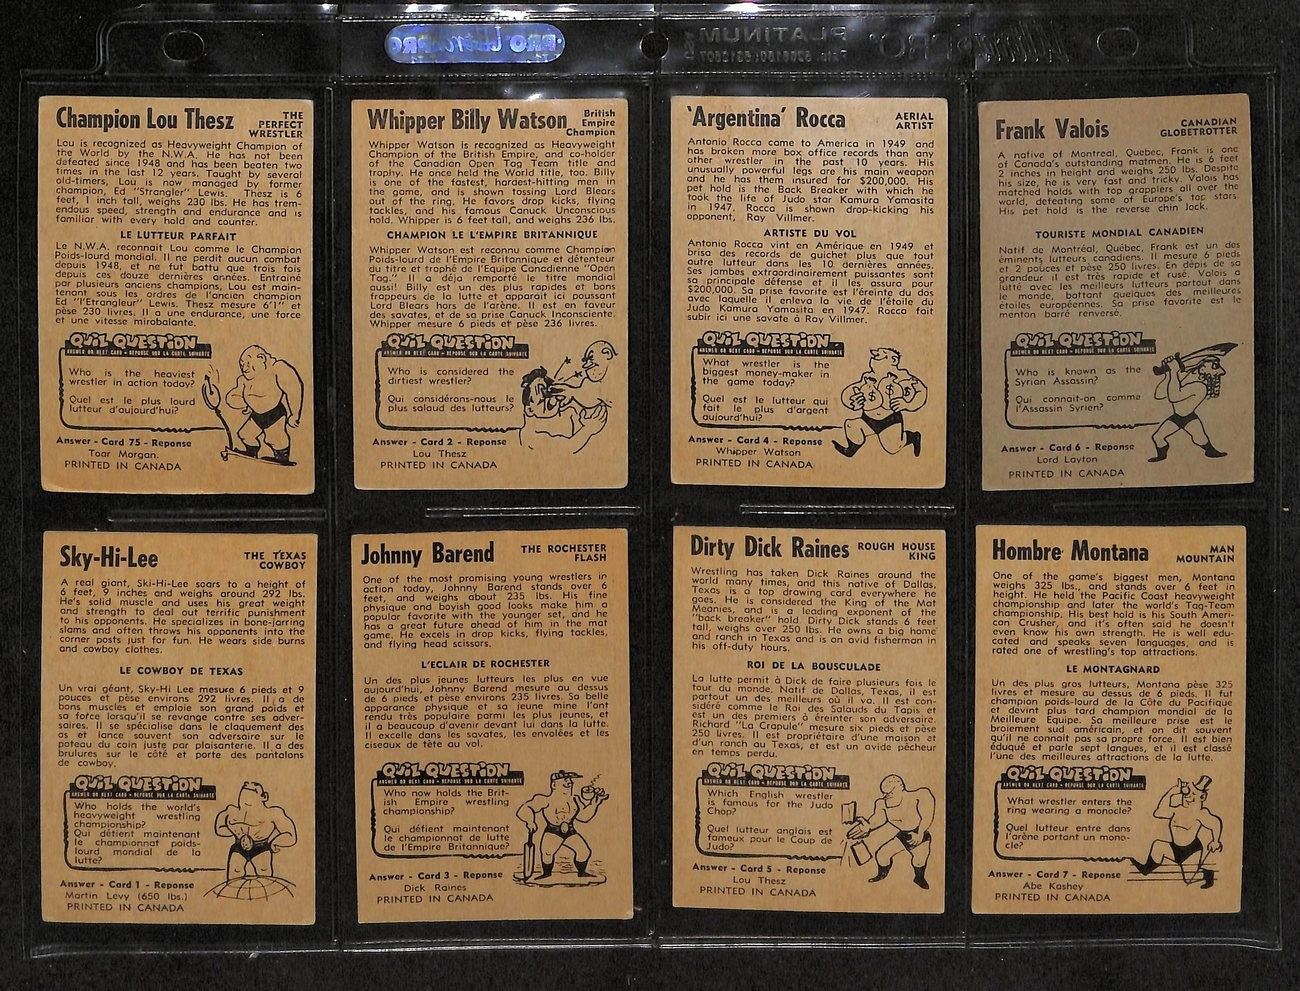 PRO Ultra PRO
PLATINUM
Champion Lou Thesz
THE
PERFECT
WRESTLER
Lou is recognized as Heavyweight Champion of
the World by the N.W.A. He has not been
defeated since 1948 and has been beaten two
times in the last 12 years. Taught by several
old-timers, Lou is now managed by former
champion, Ed "Strangler" Lewis. Thesz is 6
feet, 1 inch tall, weighs 230 lbs. He has trem-
endous speed, strength and endurance and is
familiar with every hold and counter.
LE LUTTEUR PARFAIT
Le N.W.A. reconnait Lou comme le Champion
Poids-lourd mondial. Il ne perdit aucun combat
depuis 1948, et ne fut battu que trois fois
depuis ces douze dernières années. Entrainé
par plusieurs anciens champions, Lou est main-
tenant sous les ordres de l'ancien champion
Ed "l'Etrangleur" Lewis. Thesz mesure 6'1" et
pèse 230 livres. Il a une endurance, une force
et une vitesse mirobalante.
QUIZ QUESTION
ANSWER ON NEXT CARD - REPONSE SUR LA CARTE SUIVANTE
Who is the heaviest
wrestler in action today?
Quel est le plus lourd
lutteur d'aujourd'hui?
Answer - Card 75 - Reponse
Toar Morgan.
PRINTED IN CANADA
Whipper Billy Watson
British
Empire
Champion
Whipper Watson is recognized as Heavyweight
Champion of the British Empire, and co-holder
of the Canadian Open Tag Team title and
trophy. He once held the World title, too. Billy
is one of the fastest, hardest-hitting men in
the game, and is shown tossing Lord Blears
out of the ring. He favors drop kicks, flying
tackles, and his famous Canuck Unconscious
hold. Whipper is 6 feet tall, and weighs 236 lbs.
CHAMPION LE L'EMPIRE BRITANNIQUE
Whipper Watson est reconnu comme Champion
Poids-lourd de l'Empire Britannique et détenteur
du titre et trophé de l'Equipe Canadienne "Open
Tag." Il a déja remporté le titre mondial
aussi! Billy est un des plus rapides et bons
frappeurs de la lutte et apparait ici poussant
Lord Blears hors de l'arène. Il est en faveur
des savates, et de sa prise Canuck Inconsciente.
Whipper mesure 6 pieds et pèse 236 livres.
QUIZ QUESTION
ANSWER ON NEXT CARD - REPONSE SUR LA CARTE SUIVANTE
Who is considered the
dirtiest wrestler?
Qui considérons-nous le
plus salaud des lutteurs?
Answer - Card 2 - Reponse
Lou Thesz
PRINTED IN CANADA
'Argentina' Rocca
AERIAL
ARTIST
Antonio Rocca came to America in 1949 and
has broken more box office records than any
other wrestler in the past 10 years. His
unusually powerful legs are his main weapon
and he has them insured for $200,000. His
pet hold is the Back Breaker with which he
took the life of Judo star Kamura Yamasita
in 1947. Rocca is shown drop-kicking his
opponent, Ray Villmer.
ARTISTE DU VOL
Antonio Rocca vint en Amérique en 1949 et
brisa des records de guichet plus que tout
autre lutteur dans les 10 dernières années.
Ses jambes extraordinairement puissantes sont
sa principale défense et il les assura pour
$200,000. Sa prise favorite est l'éreinte du dos
avec laquelle il enleva la vie de l'étoile du
Judo Kamura Yamasita en 1947. Rocca fait
subir ici une savate à Ray Villmer.
QUIZ QUESTION
ANSWER ON NEXT CARD - REPONSE SUR LA CARTE SUIVANTE
What wrestler is the
biggest money-maker in
the game today?
Quel est le lutteur qui
fait le plus d'argent
aujourd'hui?
Answer - Card 4 - Reponse
Whipper Watson
PRINTED IN CANADA
Frank Valois
CANADIAN
GLOBETROTTER
A native of Montreal, Quebec, Frank is one
of Canada's outstanding matmen. He is 6 feet
2 inches in height and weighs 250 lbs. Despite
his size, he is very fast and tricky. Valois has
matched holds with top grapplers all over the
world, defeating some of Europe's top stars.
His pet hold is the reverse chin lock.
TOURISTE MONDIAL CANADIEN
Natif de Montréal, Québec, Frank est un des
éminents lutteurs canadiens. Il mesure 6 pieds
et 2 pouces et pèse 250 livres. En dépis de sa
grandeur il est très rapide et rusé. Valois a
lutté avec les meilleurs lutteurs partout dans
le monde, battant quelques des meilleures
étoiles européennes. Sa prise favorite est le
menton barré renversé.
QUIZ QUESTION
ANSWER ON NEXT CARD - REPONSE SUR LA CARTE SUIVANTE
Who is known as the
Syrian Assassin?
Qui connait-on comme
l'Assassin Syrien?
Answer - Card 6 - Reponse
Lord Layton
PRINTED IN CANADA
Sky-Hi-Lee
THE TEXAS
COWBOY
A real giant, Ski-Hi-Lee soars to a height of
6 feet, 9 inches and weighs around 292 lbs.
He's solid muscle and uses his great weight
and strength to deal out terrific punishment
to his opponents. He specializes in bone-jarring
slams and often throws his opponents into the
corner posts just for fun. He wears side burns
and cowboy clothes.
LE COWBOY DE TEXAS
Un vrai géant, Sky-Hi Lee mesure 6 pieds et 9
pouces et pèse environs 292 livres. Il a de
bons muscles et emploie son grand poids et
sa force lorsqu'il se revange contre ses adver-
saires. Il se spécialise dans le claquement des
os et lance souvent son adversaire sur le
poteau du coin juste par plaisanterie. Il a des
brulures sur le côté et porte des pantalons
de cowboy.
QUIZ QUESTION
ANSWER ON NEXT CARD - REPONSE SUR LA CARTE SUIVANTE
Who holds the world's
heavyweight wrestling
championship?
Qui détient maintenant
le championnat poids-
lourd mondial de la
lutte?
Answer - Card 1 - Reponse
Martin Levy (650 lbs.)
PRINTED IN CANADA
Johnny Barend
THE ROCHESTER
FLASH
One of the most promising young wrestlers in
action today, Johnny Barend stands over 6
feet, and weighs about 235 lbs. His fine
physique and boyish good looks make him a
popular favorite with the younger set, and he
has a great future ahead of him in the mat
game. He excels in drop kicks, flying tackles,
and flying head scissors.
L'ECLAIR DE ROCHESTER
Un des plus jeunes lutteurs les plus en vue
aujourd'hui, Johnny Barend mesure au dessus
de 6 pieds et pèse environs 235 livres. Sa belle
apparance physique et sa jeune mine l'ont
rendu très populaire parmi les plus jeunes, et
il a beaucoup d'avenir devant lui dans la lutte.
Il excelle dans les savates, les envolées et les
ciseaux de tête au vol.
QUIZ QUESTION
ANSWER ON NEXT CARD - REPONSE SUR LA CARTE SUIVANTE
Who now holds the Brit-
ish Empire wrestling
championship?
Qui défient maintenant
le championnat de lutte
de l'Empire Britannique?
Answer - Card 3 - Reponse
Dick Raines
PRINTED IN CANADA
Dirty Dick Raines
ROUGH HOUSE
KING
Wrestling has taken Dick Raines around the
world many times, and this native of Dallas,
Texas is a top drawing card everywhere he
goes. He is considered the King of the Mat
Meanies, and is a leading exponent of the
"back breaker" hold. Dirty Dick stands 6 feet
tall, weighs over 250 lbs. He owns a big home
and ranch in Texas and is an avid fisherman in
his off-duty hours.
ROI DE LA BOUSCULADE
La lutte permit à Dick de faire plusieurs fois le
tour du monde. Natif de Dallas, Texas, il est
partout un des meilleurs où il va. Il est con-
sidéré comme le Roi des Salauds du Tapis et
est un des premiers à éreinter son adversaire.
Richard "La Crapule" mesure six pieds et pèse
250 livres. Il est propriétaire d'une maison et
d'un ranch au Texas, et est un avide pêcheur
en temps perdu.
QUIZ QUESTION
ANSWER ON NEXT CARD - REPONSE SUR LA CARTE SUIVANTE
Which English wrestler
is famous for the Judo
Chop?
Quel lutteur anglais est
fameux pour le Coup de
Judo?
Answer - Card 5 - Reponse
Lou Thesz
PRINTED IN CANADA
Hombre Montana
MAN
MOUNTAIN
One of the game's biggest men, Montana
weighs 325 lbs, and stands over 6 feet in
height. He held the Pacific Coast heavyweight
championship and later the world's Tag-Team
championship. His best hold is his South Ameri-
can Crusher, and it's often said he doesn't
even know his own strength. He is well edu-
cated and speaks seven languages, and is
rated one of wrestling's top attractions.
LE MONTAGNARD
Un des plus gros lutteurs, Montana pèse 325
livres et mesure au dessus de 6 pieds. Il fut
champion poids-lourd de la Côte du Pacifique
et devint plus tard champion mondial de la
Meilleure Equipe. Sa meilleure prise est le
broiement sud américain, et on dit souvent
qu'il ne connaît pas sa propre force. Il est bien
éduqué et parle sept langues, et il est classé
l'une des meilleures attractions de la lutte.
QUIZ QUESTION
ANSWER ON NEXT CARD - REPONSE SUR LA CARTE SUIVANTE
What wrestler enters the
ring wearing a monocle?
Quel lutteur entre dans
l'arène portant un mono-
cle?
Answer - Card 7 - Reponse
Abe Kashey
PRINTED IN CANADA